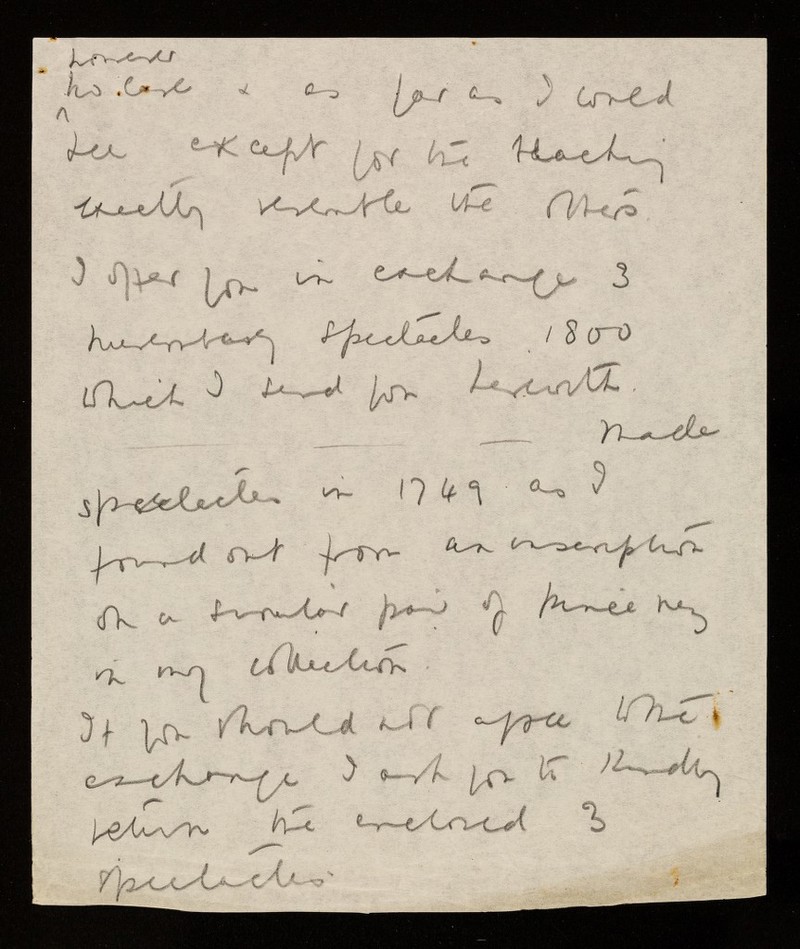 however
no case & as far as I could
see except for the teaching
exactly resemble the others.
I offer you in exchange 3
Nuremberg spectacles 1800
which I send you herewith.
made
spectacles in 1749 as I
found out from an inscription
on a similar pair of pince nez
in my collection.
If you should not agree with
exchange I ask you to kindly
return the enclosed 3
spectacles.